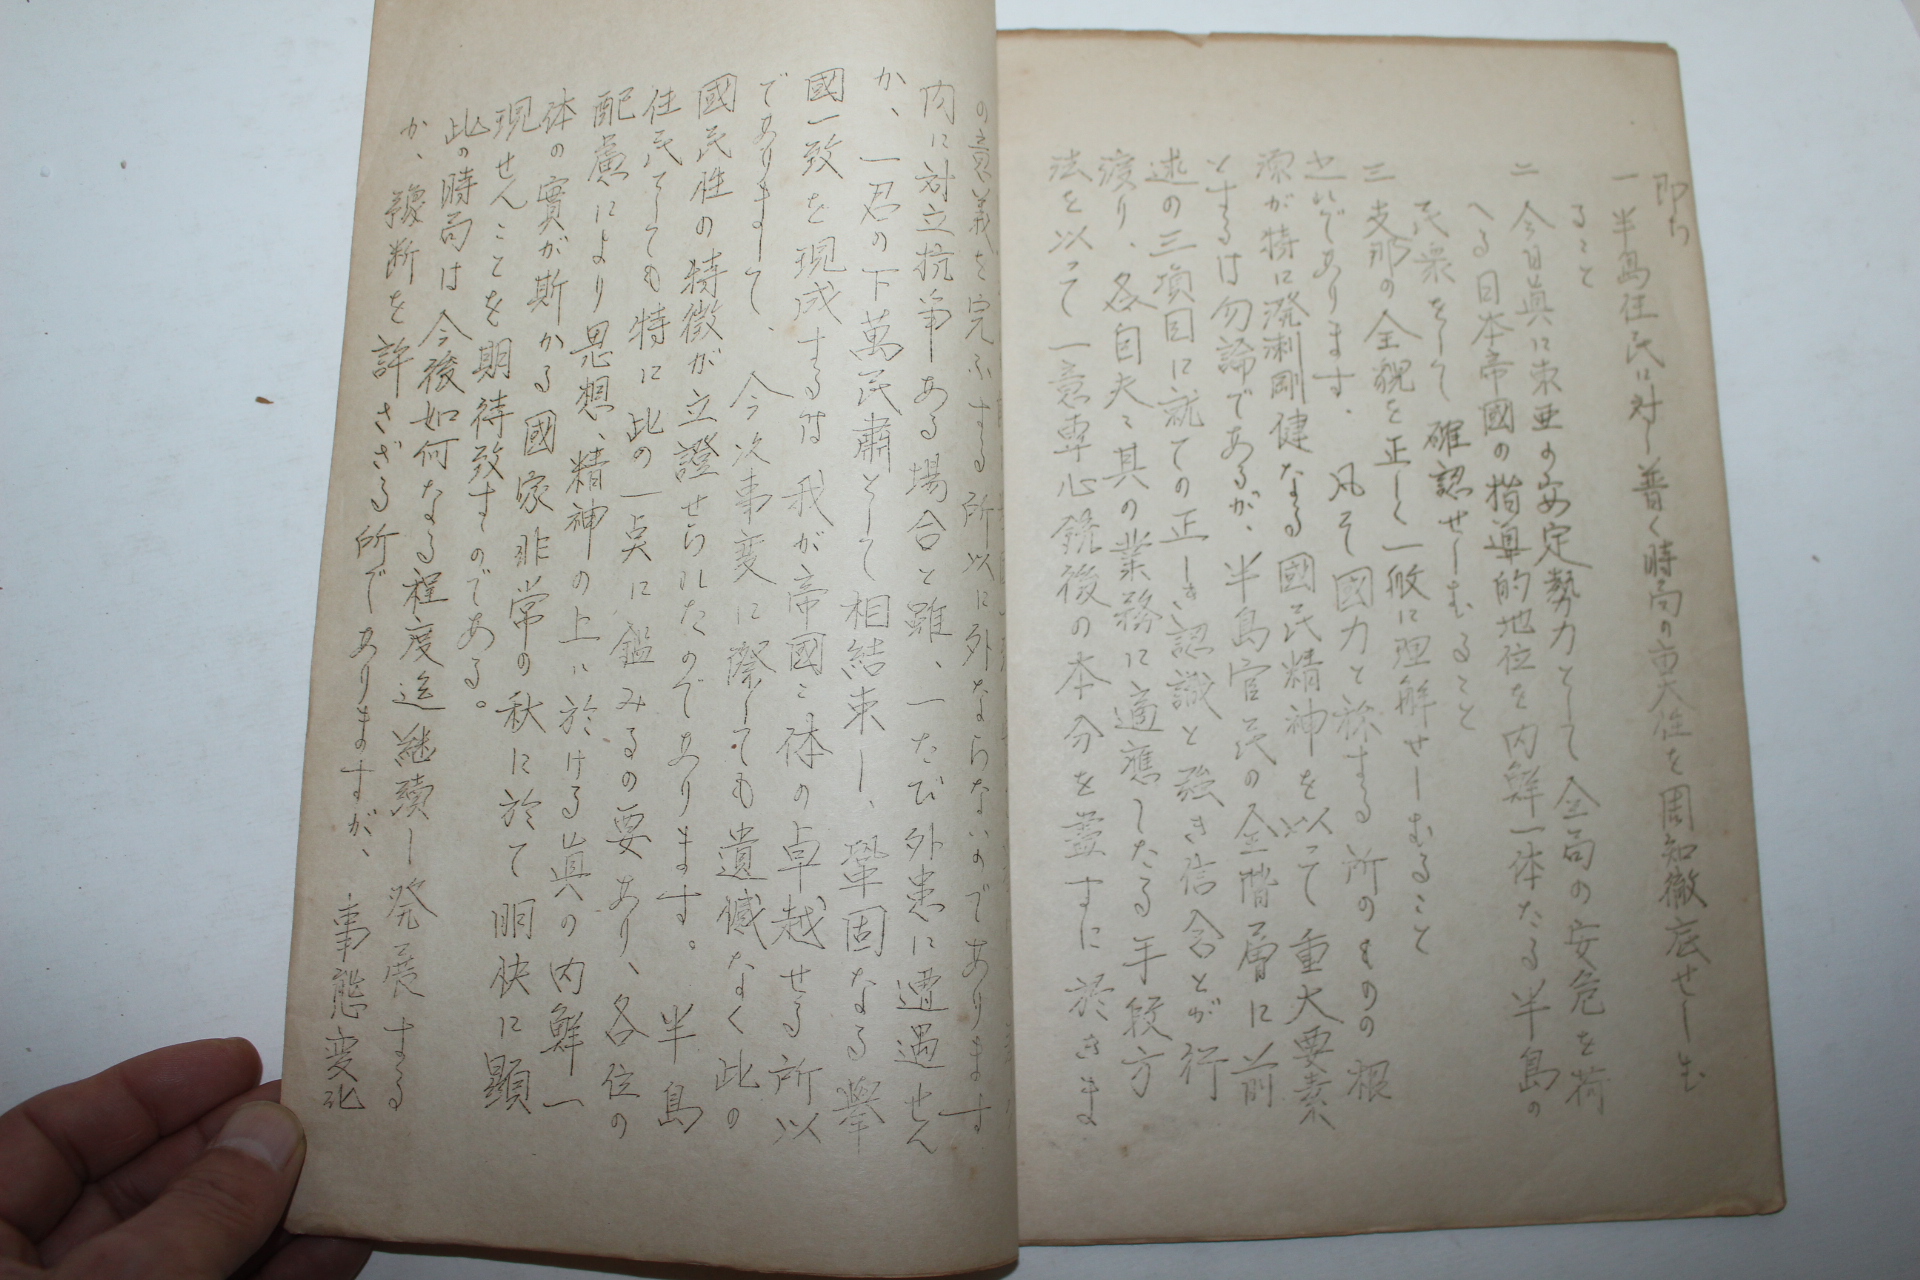 即ち
一 半島住民に対し普く時局の重大性を周知徹底せしむ
ること
二 今日真に東亜の安定勢力として全局の安危を荷
へる日本帝國の指導的地位を内鮮一体たる半島の
民衆をして確認せしむること
三 支那の全貌を正しく一般に理解せしむること
之れであります．凡そ國力と称する所のものの根
源が特に溌溂剛健なる國民精神を以って重大要素
とするは勿論であるが、半島官民の全階層に前
述の三項目に就ての正しき認識と強き信念とが行
渡り、各自夫々其の業務に適應したる手段方
法を以って一意専心銃後の本分を盡すに於きま
の意義を完ふする所以に外ならないのであります
内に対立抗争ある場合と雖、一たび外患に遭遇せん
か、一君の下萬民肅として相結束し、鞏固なる擧
國一致を現成するは我が帝國々体の卓越せる所以
でありまして、今次事変に際しても遺憾なく此の
國民性の特徴が立證せられたのであります。半島
住民しても特に此の一点に鑑みるの要あり、各位の
配慮により思想、精神の上に於ける眞の内鮮一
体の實が斯かる國家非常の秋に於て明快に顯
現せんことを期待致すのである。
此の時局は今後如何なる程度迄継續し発展する
か、豫断を許さざる所でありますが、事態変化